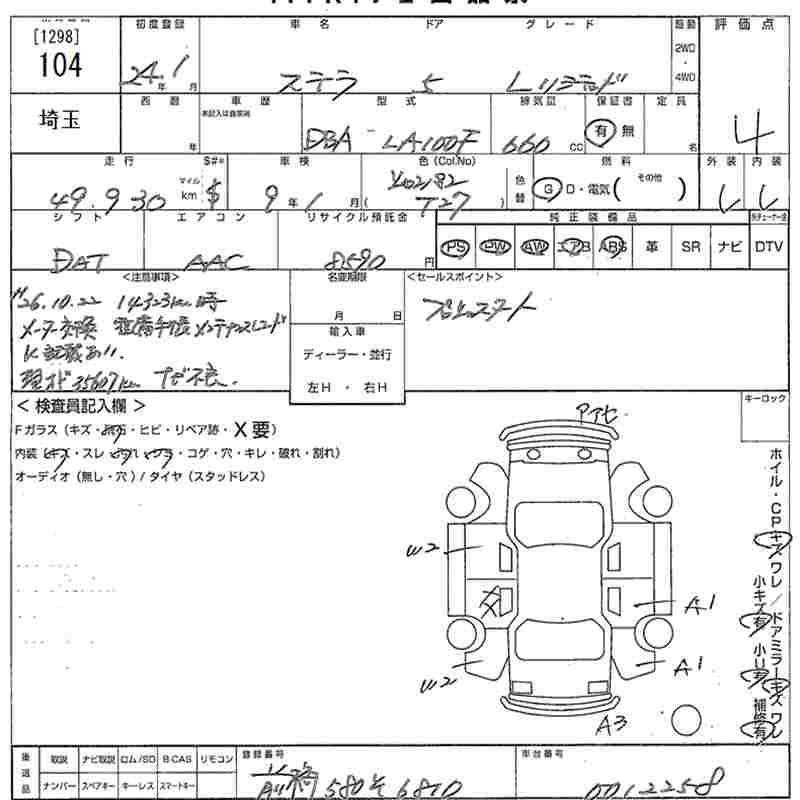 [1298]
104
埼玉
初度登録 車名 ドア グレード 駆動 評価点
24年1月 ステラ 5 Lリミテッド 2WD・4WD 4
西暦 車歴 型式 排気量 保証書 定員
年 未記入は自家用 DBA LA100F 660cc 有 無 名
走行 S#* 車検 色(Col.No) 燃料 外装 内装
49,930 マイル km $ 9年1月 T27 色替 G D・電気 ( その他 )
シフト エアコン リサイクル預託金 純正装備品
DAT AAC 8590円 PS PW AW エアB ABS 革 SR ナビ DTV
<注意事項> 名変期限 <セールスポイント>
H26.10.22 14323km時 月 日
メーター交換 整備手帳メンテナンスノート
に記載あり. 輸入車
ディーラー・並行
左H・右H
<検査員記入欄> キーロック
Fガラス(キズ・飛石・ヒビ・リペア跡・X要)
内装(キズ・スレ・汚れ・ワラ・コゲ・穴・キレ・破れ・割れ)
オーディオ(無し・穴)/タイヤ(スタッドレス)
W2
A1
A1
W2
A3
ホイル・CPキズワレ/ドアミラーキズワレ
小キズ有 小U有 補修有
後送品 取説 ナビ取説 ロム/SD B CAS リモコン 登録番号 車台番号
ナンバー スペアキー キーレス スマートキー 580 そ 6810 0012258